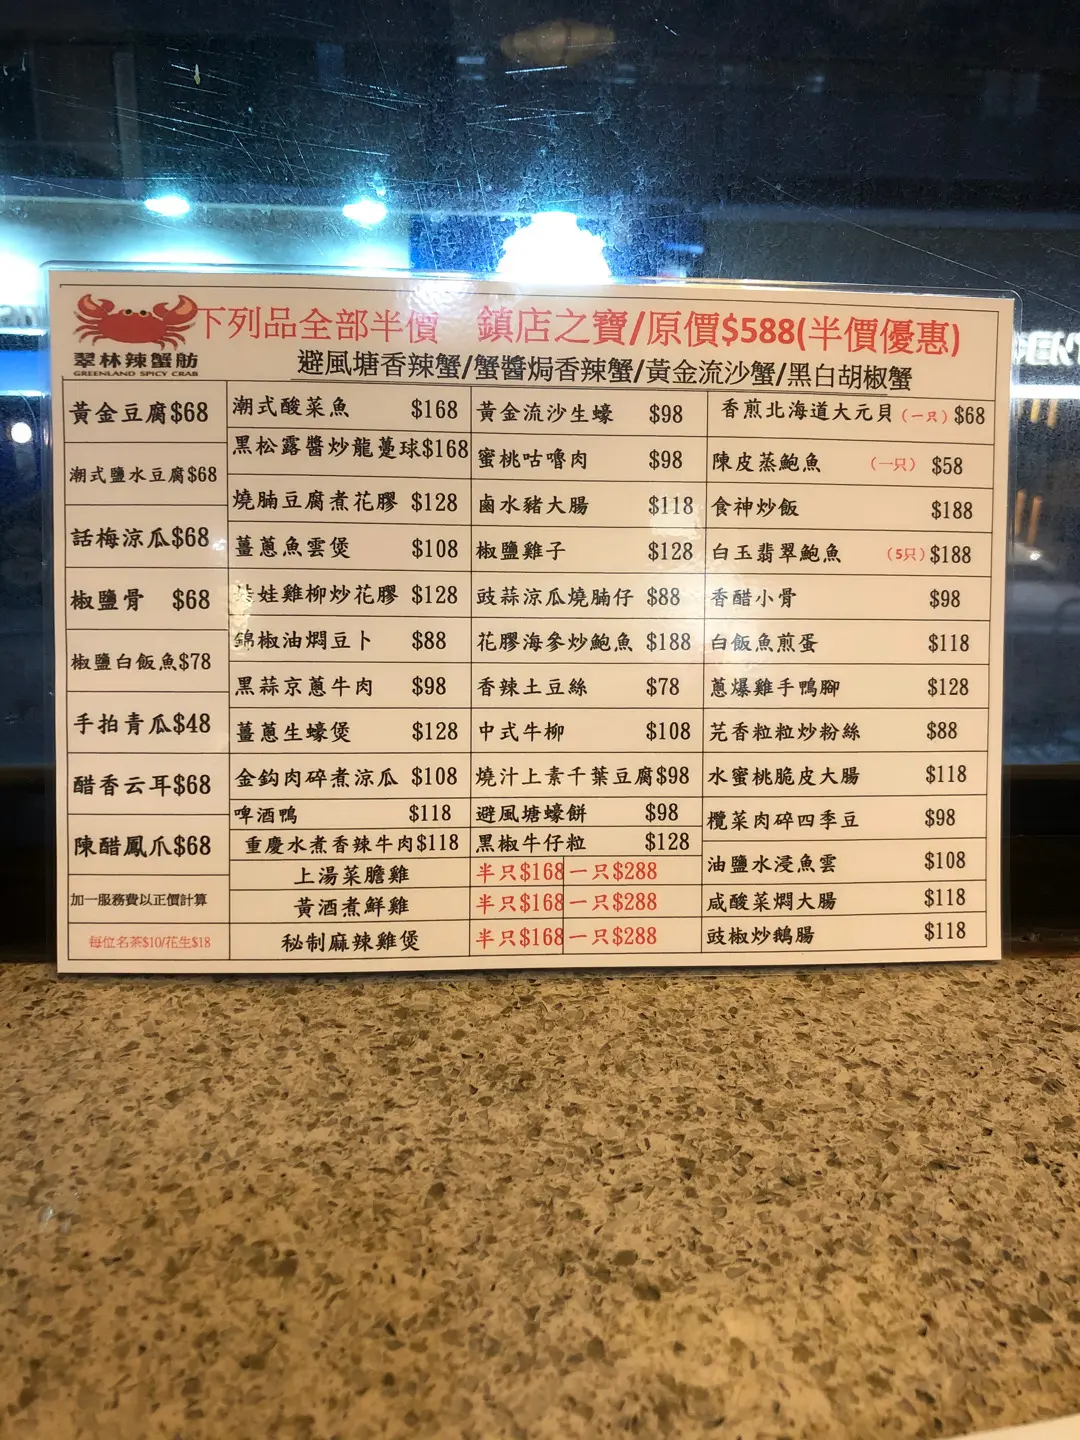 下列品全部半價 鎮店之寶/原價$588(半價優惠)
翠林辣蟹舫
GREENLAND SPICY CRAB
避風塘香辣蟹/蟹醬焗香辣蟹/黃金流沙蟹/黑白胡椒蟹
黃金豆腐$68
潮式鹽水豆腐$68
話梅涼瓜$68
椒鹽骨 $68
椒鹽白飯魚$78
手拍青瓜$48
醋香云耳$68
陳醋鳳爪$68
加一服務費以正價計算
每位名茶$10/花生$18
潮式酸菜魚 $168
黑松露醬炒龍躉球$168
燒腩豆腐煮花膠 $128
薑蔥魚雲煲 $108
娃雞柳炒花膠 $128
錦椒油燜豆卜 $88
黑蒜京蔥牛肉 $98
薑蔥生蠔煲 $128
金鈎肉碎煮涼瓜 $108
啤酒鴨 $118
重慶水煮香辣牛肉$118
上湯菜膽雞 半只$168 一只$288
黃酒煮鮮雞 半只$168 一只$288
秘制麻辣雞煲 半只$168 一只$288
黃金流沙生蠔 $98
蜜桃咕嚕肉 $98
鹵水豬大腸 $118
椒鹽雞子 $128
豉蒜涼瓜燒腩仔 $88
花膠海參炒鮑魚 $188
香辣土豆絲 $78
中式牛柳 $108
燒汁上素千葉豆腐$98
避風塘蠔餅 $98
黑椒牛仔粒 $128
香煎北海道大元貝(一只) $68
陳皮蒸鮑魚 (一只) $58
食神炒飯 $188
白玉翡翠鮑魚 (5只) $188
香醋小骨 $98
白飯魚煎蛋 $118
蔥爆雞手鴨腳 $128
芫香粒粒炒粉絲 $88
水蜜桃脆皮大腸 $118
欖菜肉碎四季豆 $98
油鹽水浸魚雲 $108
咸酸菜燜大腸 $118
豉椒炒鵝腸 $118